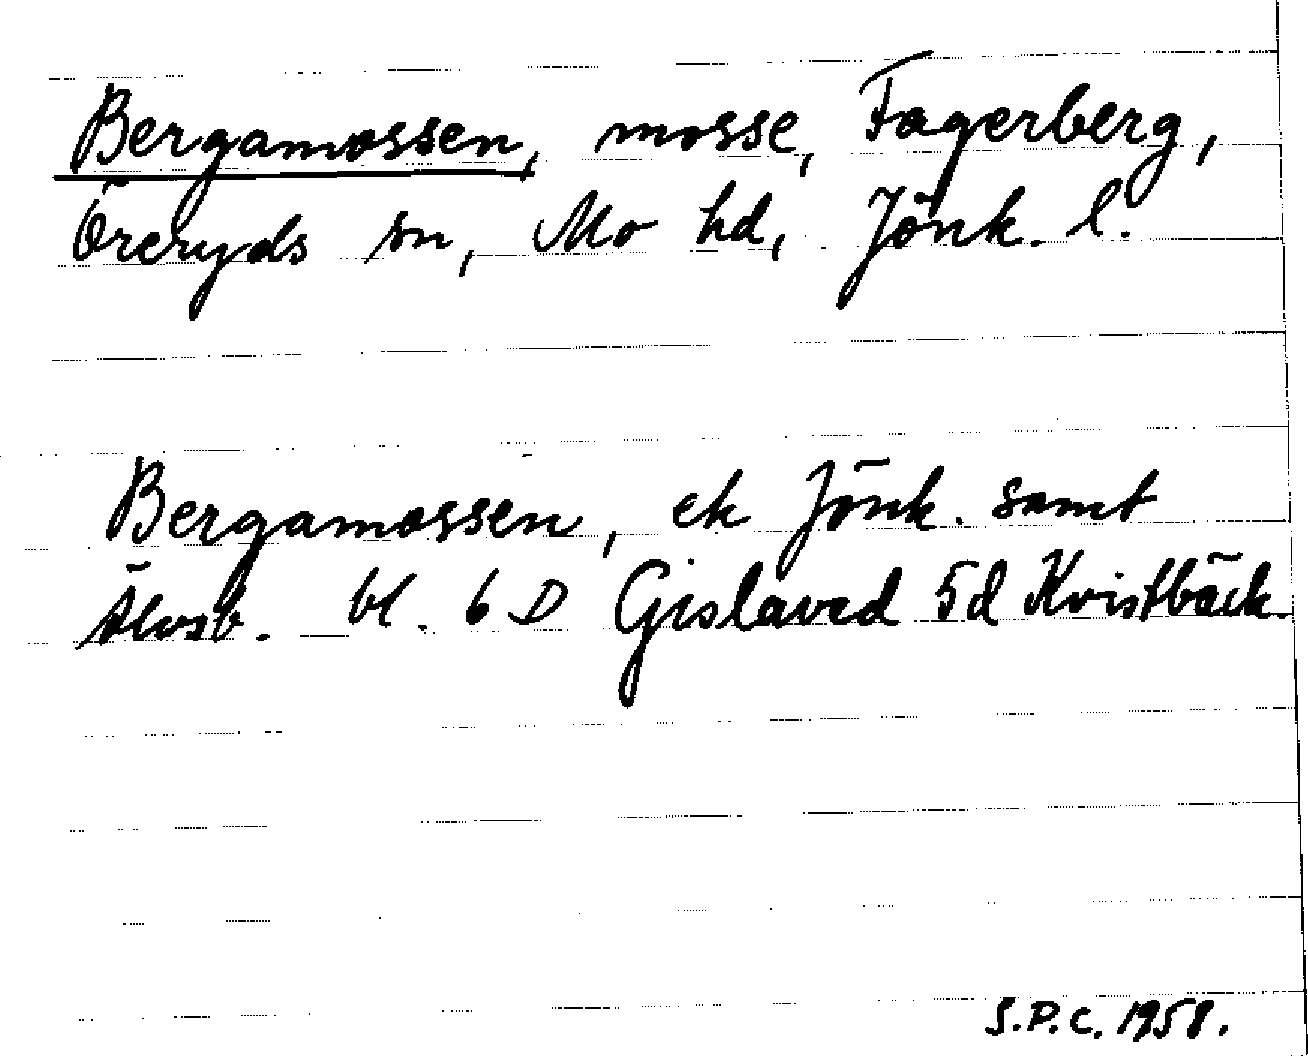 Bergamossen, mosse, Fagerberg,
Öreryds sn, Mo hd, Jönk. l.
Bergamossen, ek Jönk. samt
Älvsb. bl. 6 D Gislaved 5d Kvistbäck.
S.P.C. 1958.